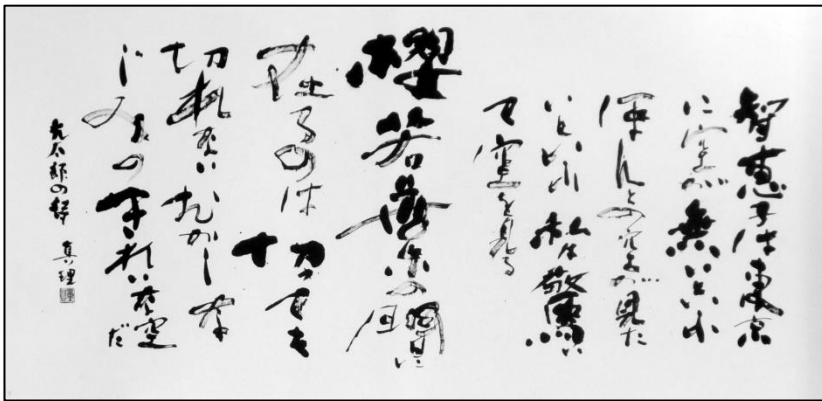 智恵子は東京
に空が無いといふ
ほんとの空が見た
いといふ 私は驚い
て空を見る
櫻若葉の間に
在るのは 切つても
切れない むかしな
じみのきれいな空だ
光太郎の詩 真理